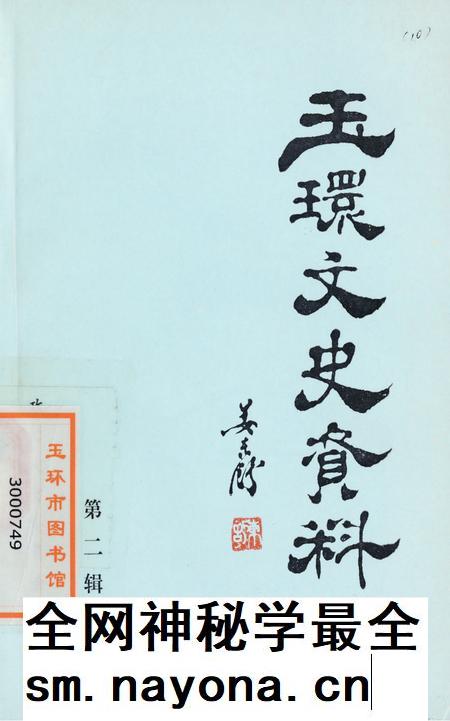 (10)
玉環文史資料
姜东舒
第二辑
玉环市图书馆
3000749
全网神秘学最全
sm.nayona.cn